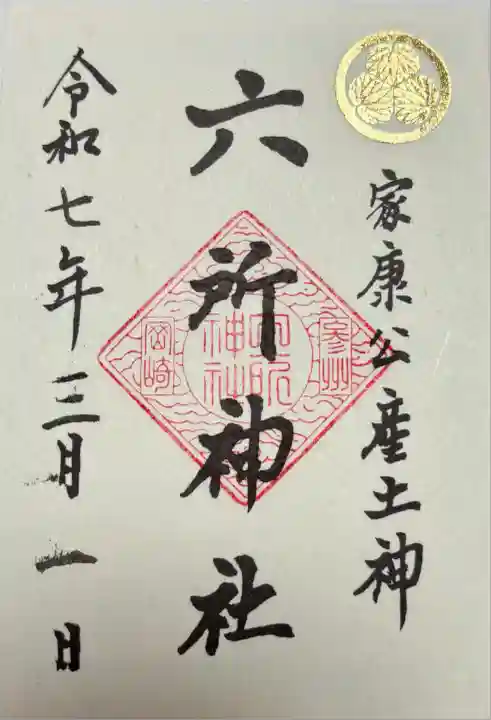 家康公産土神
六所神社
参州
六所
神社
岡崎
令和七年三月一日